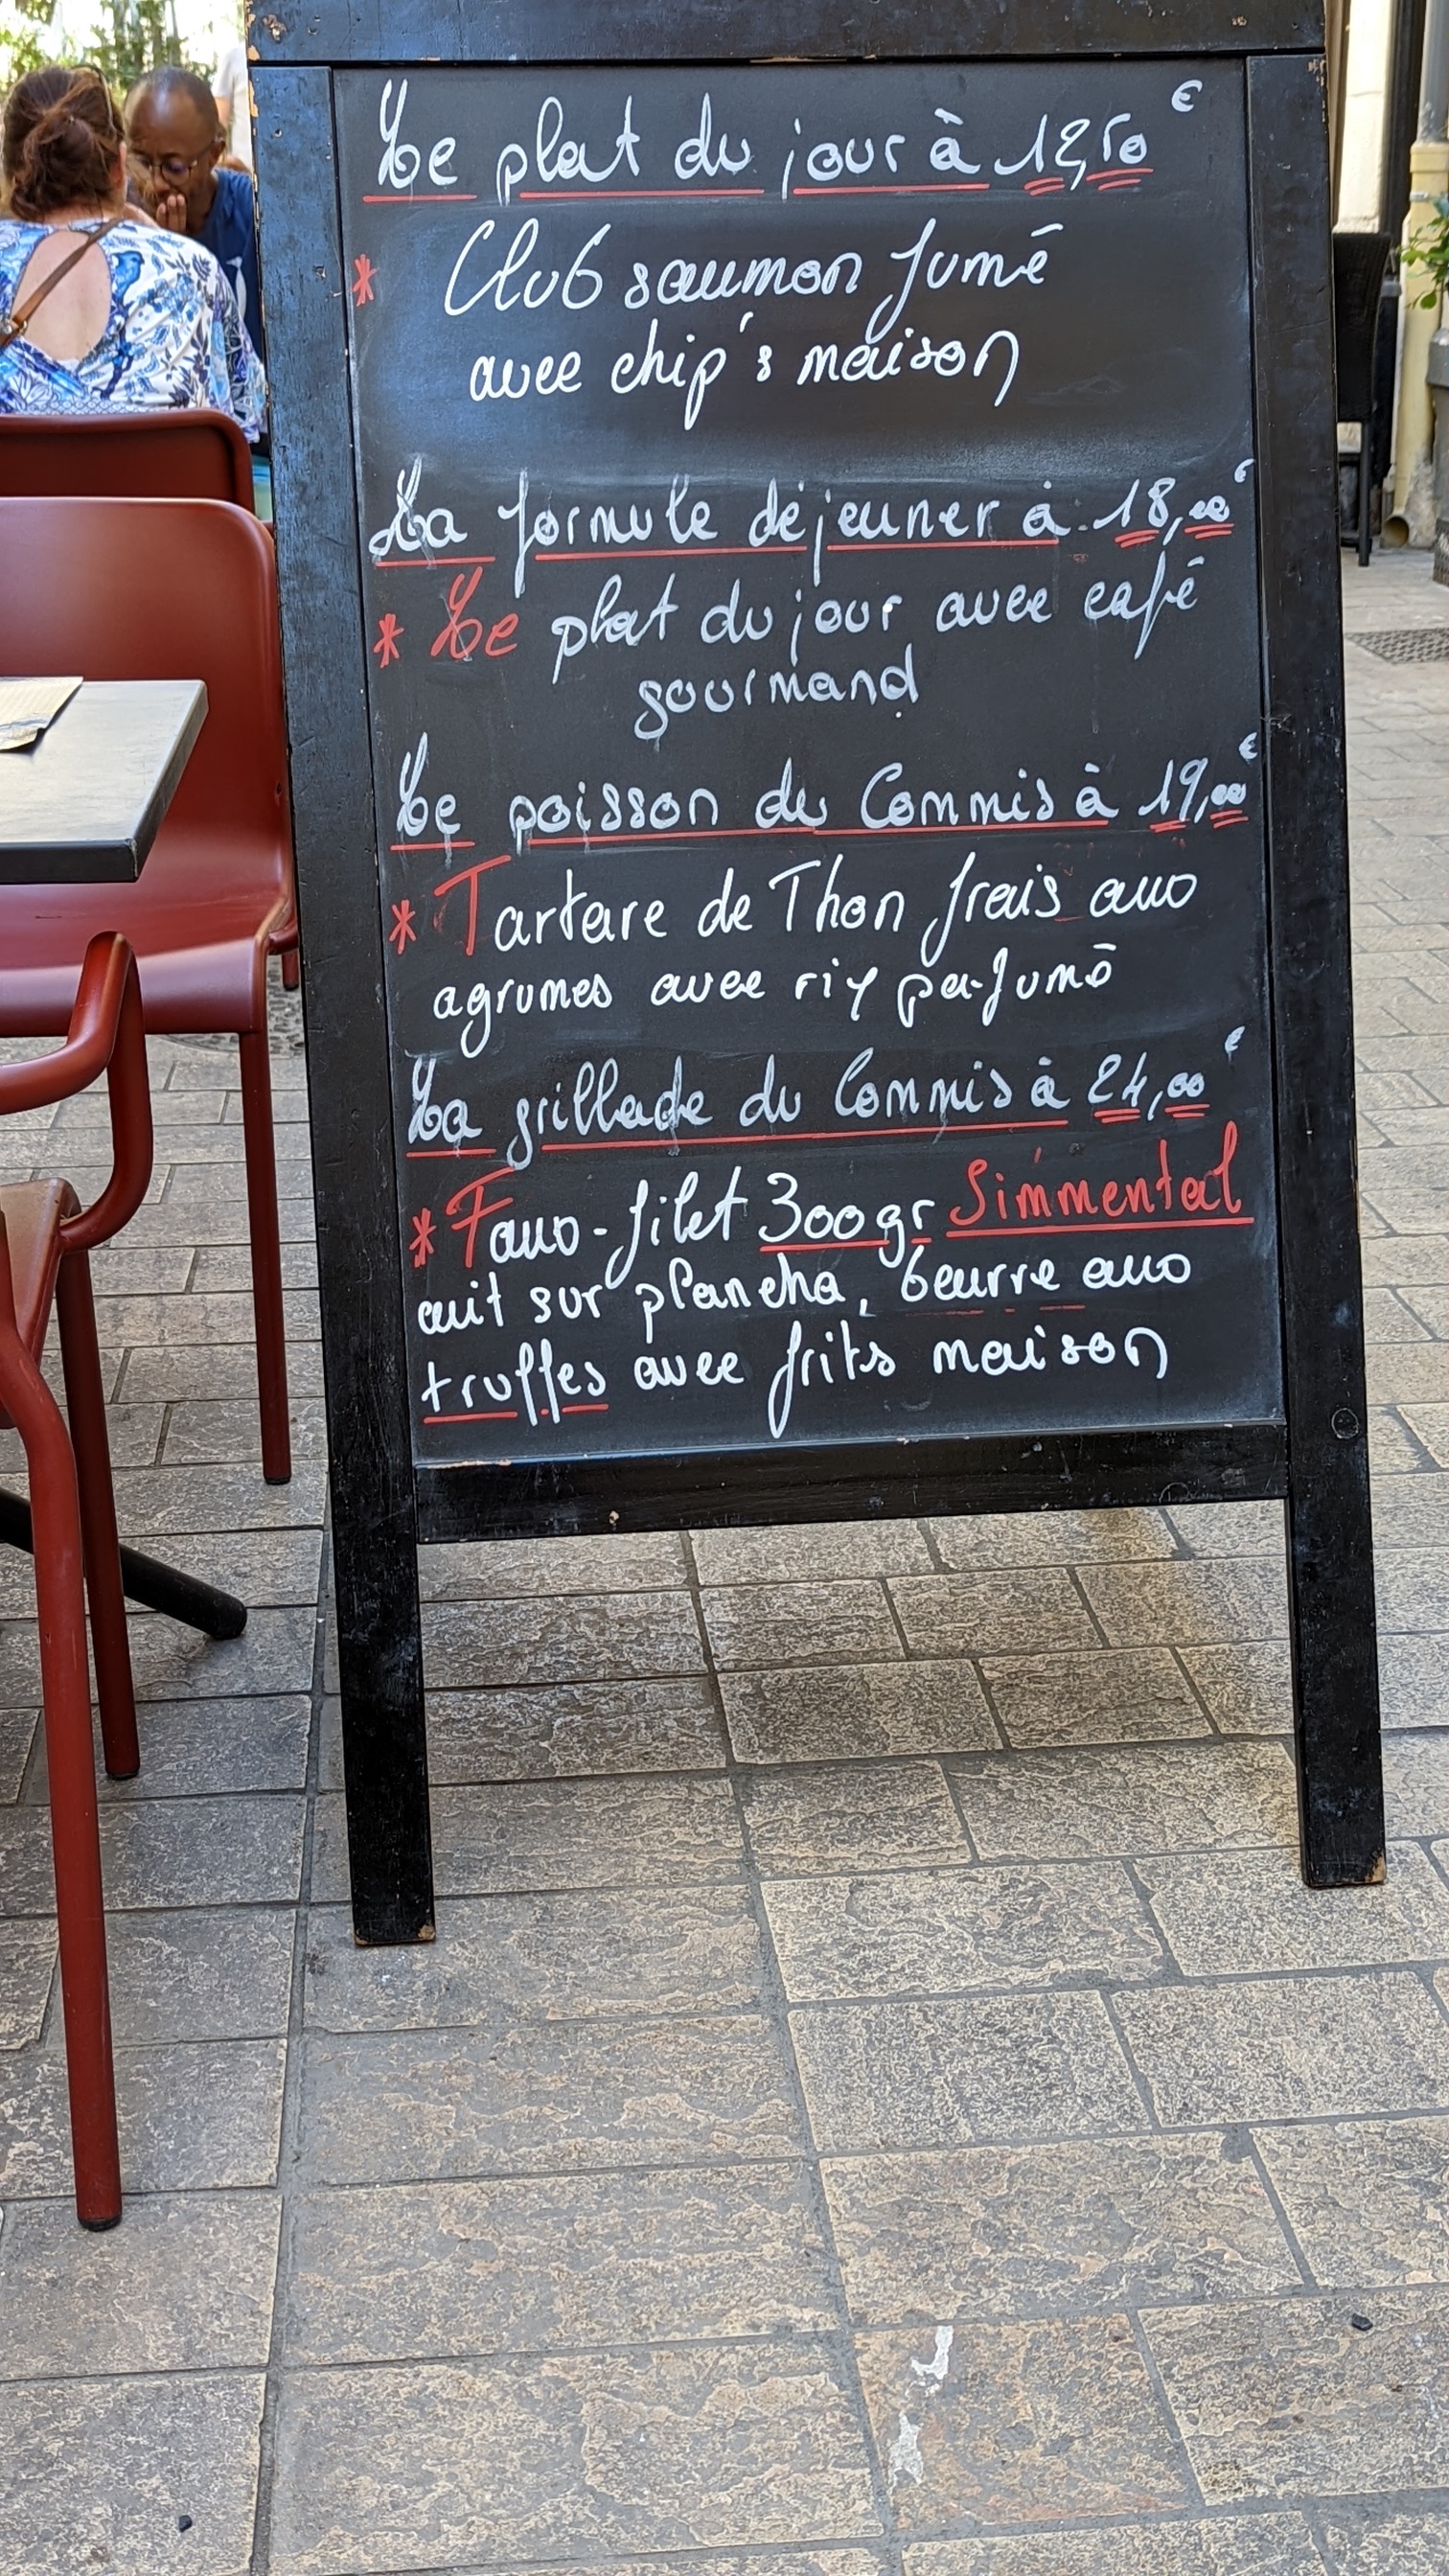 Le plat du jour à 12,50 €
* Club saumon fumé
avec chip's maison
La formule déjeuner à 18,00 €
* Le plat du jour avec café
gourmand
Le poisson du Commis à 19,00 €
* Tartare de Thon frais aux
agrumes avec riz parfumé
La grillade du Commis à 24,00 €
* Faux-filet 300gr Simmental
cuit sur plancha, beurre aux
truffes avec frits maison